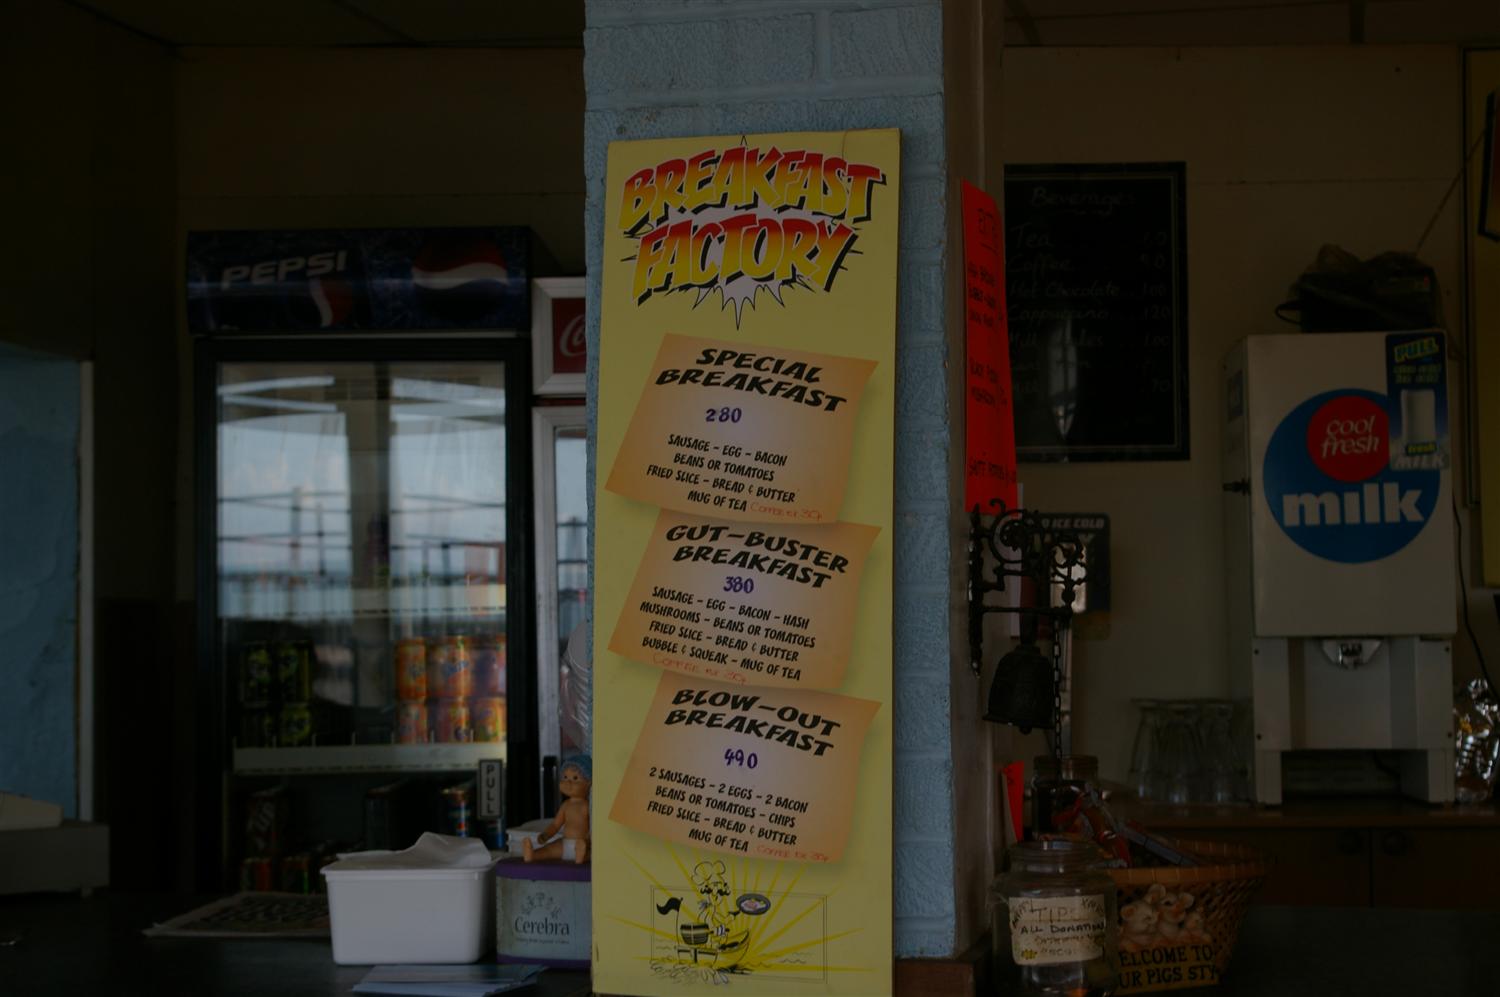 BREAKFAST
FACTORY
SPECIAL
BREAKFAST
280
SAUSAGE - EGG - BACON
BEANS OR TOMATOES
FRIED SLICE - BREAD & BUTTER
MUG OF TEA COFFEE EX 30p
GUT-BUSTER
BREAKFAST
380
SAUSAGE - EGG - BACON - HASH
MUSHROOMS - BEANS OR TOMATOES
FRIED SLICE - BREAD & BUTTER
BUBBLE & SQUEAK - MUG OF TEA
COFFEE EX 30p
BLOW-OUT
BREAKFAST
490
2 SAUSAGES - 2 EGGS - 2 BACON
BEANS OR TOMATOES - CHIPS
FRIED SLICE - BREAD & BUTTER
MUG OF TEA COFFEE EX 30p
PEPSI
PULL
Cerebra
Beverages
Tea
Coffee 90
Hot Chocolate 100
Cappuccino 120
100
70
ICE COLD
PULL
fresh
MILK
cool
fresh
milk
TIPS
ALL DONATIONS
ELCOME TO
UR PIGS STY